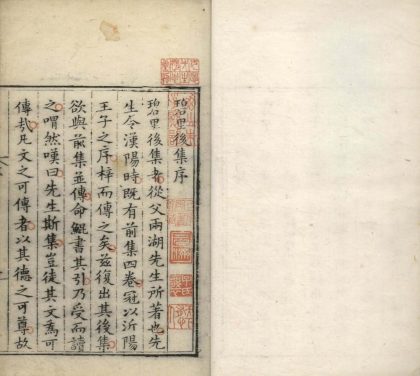 碧里後集序
碧里後集者從父兩湖先生所著也先
生令漢陽時既有前集四卷冠以沂陽
王子之序梓而傳之矣茲復出其後集
欲與前集並傳命鯤書其引乃受而讀
之喟然嘆曰先生斯集豈徒其文焉可
傳哉凡文之可傳者以其德之可尊故